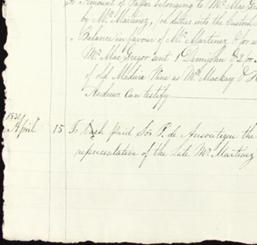 To Amount of Paper belonging to Mr Mac Gre
by Mr Martinez, for duties into the Custom
Balance in favour of Mr Martinez
Mr Mac Gregor and 1 Demijohn
of old Madeira Wine as Mr Mackay &
Andrew Can testify
1821
April 15 To Cash paid Sor P. de the
representative of the Late Mr Martinez